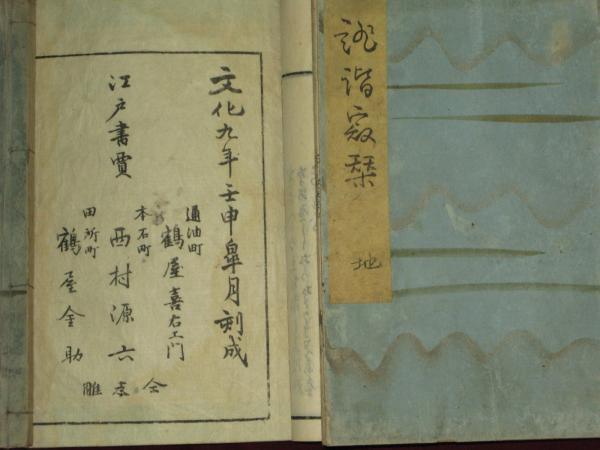 誹諧寂栞
地
文化九年壬申皐月刻成
江戸書賈
通油町
鶴屋喜右エ門
本石町
西村源六
田所町
鶴屋金助
仝
梓
雕